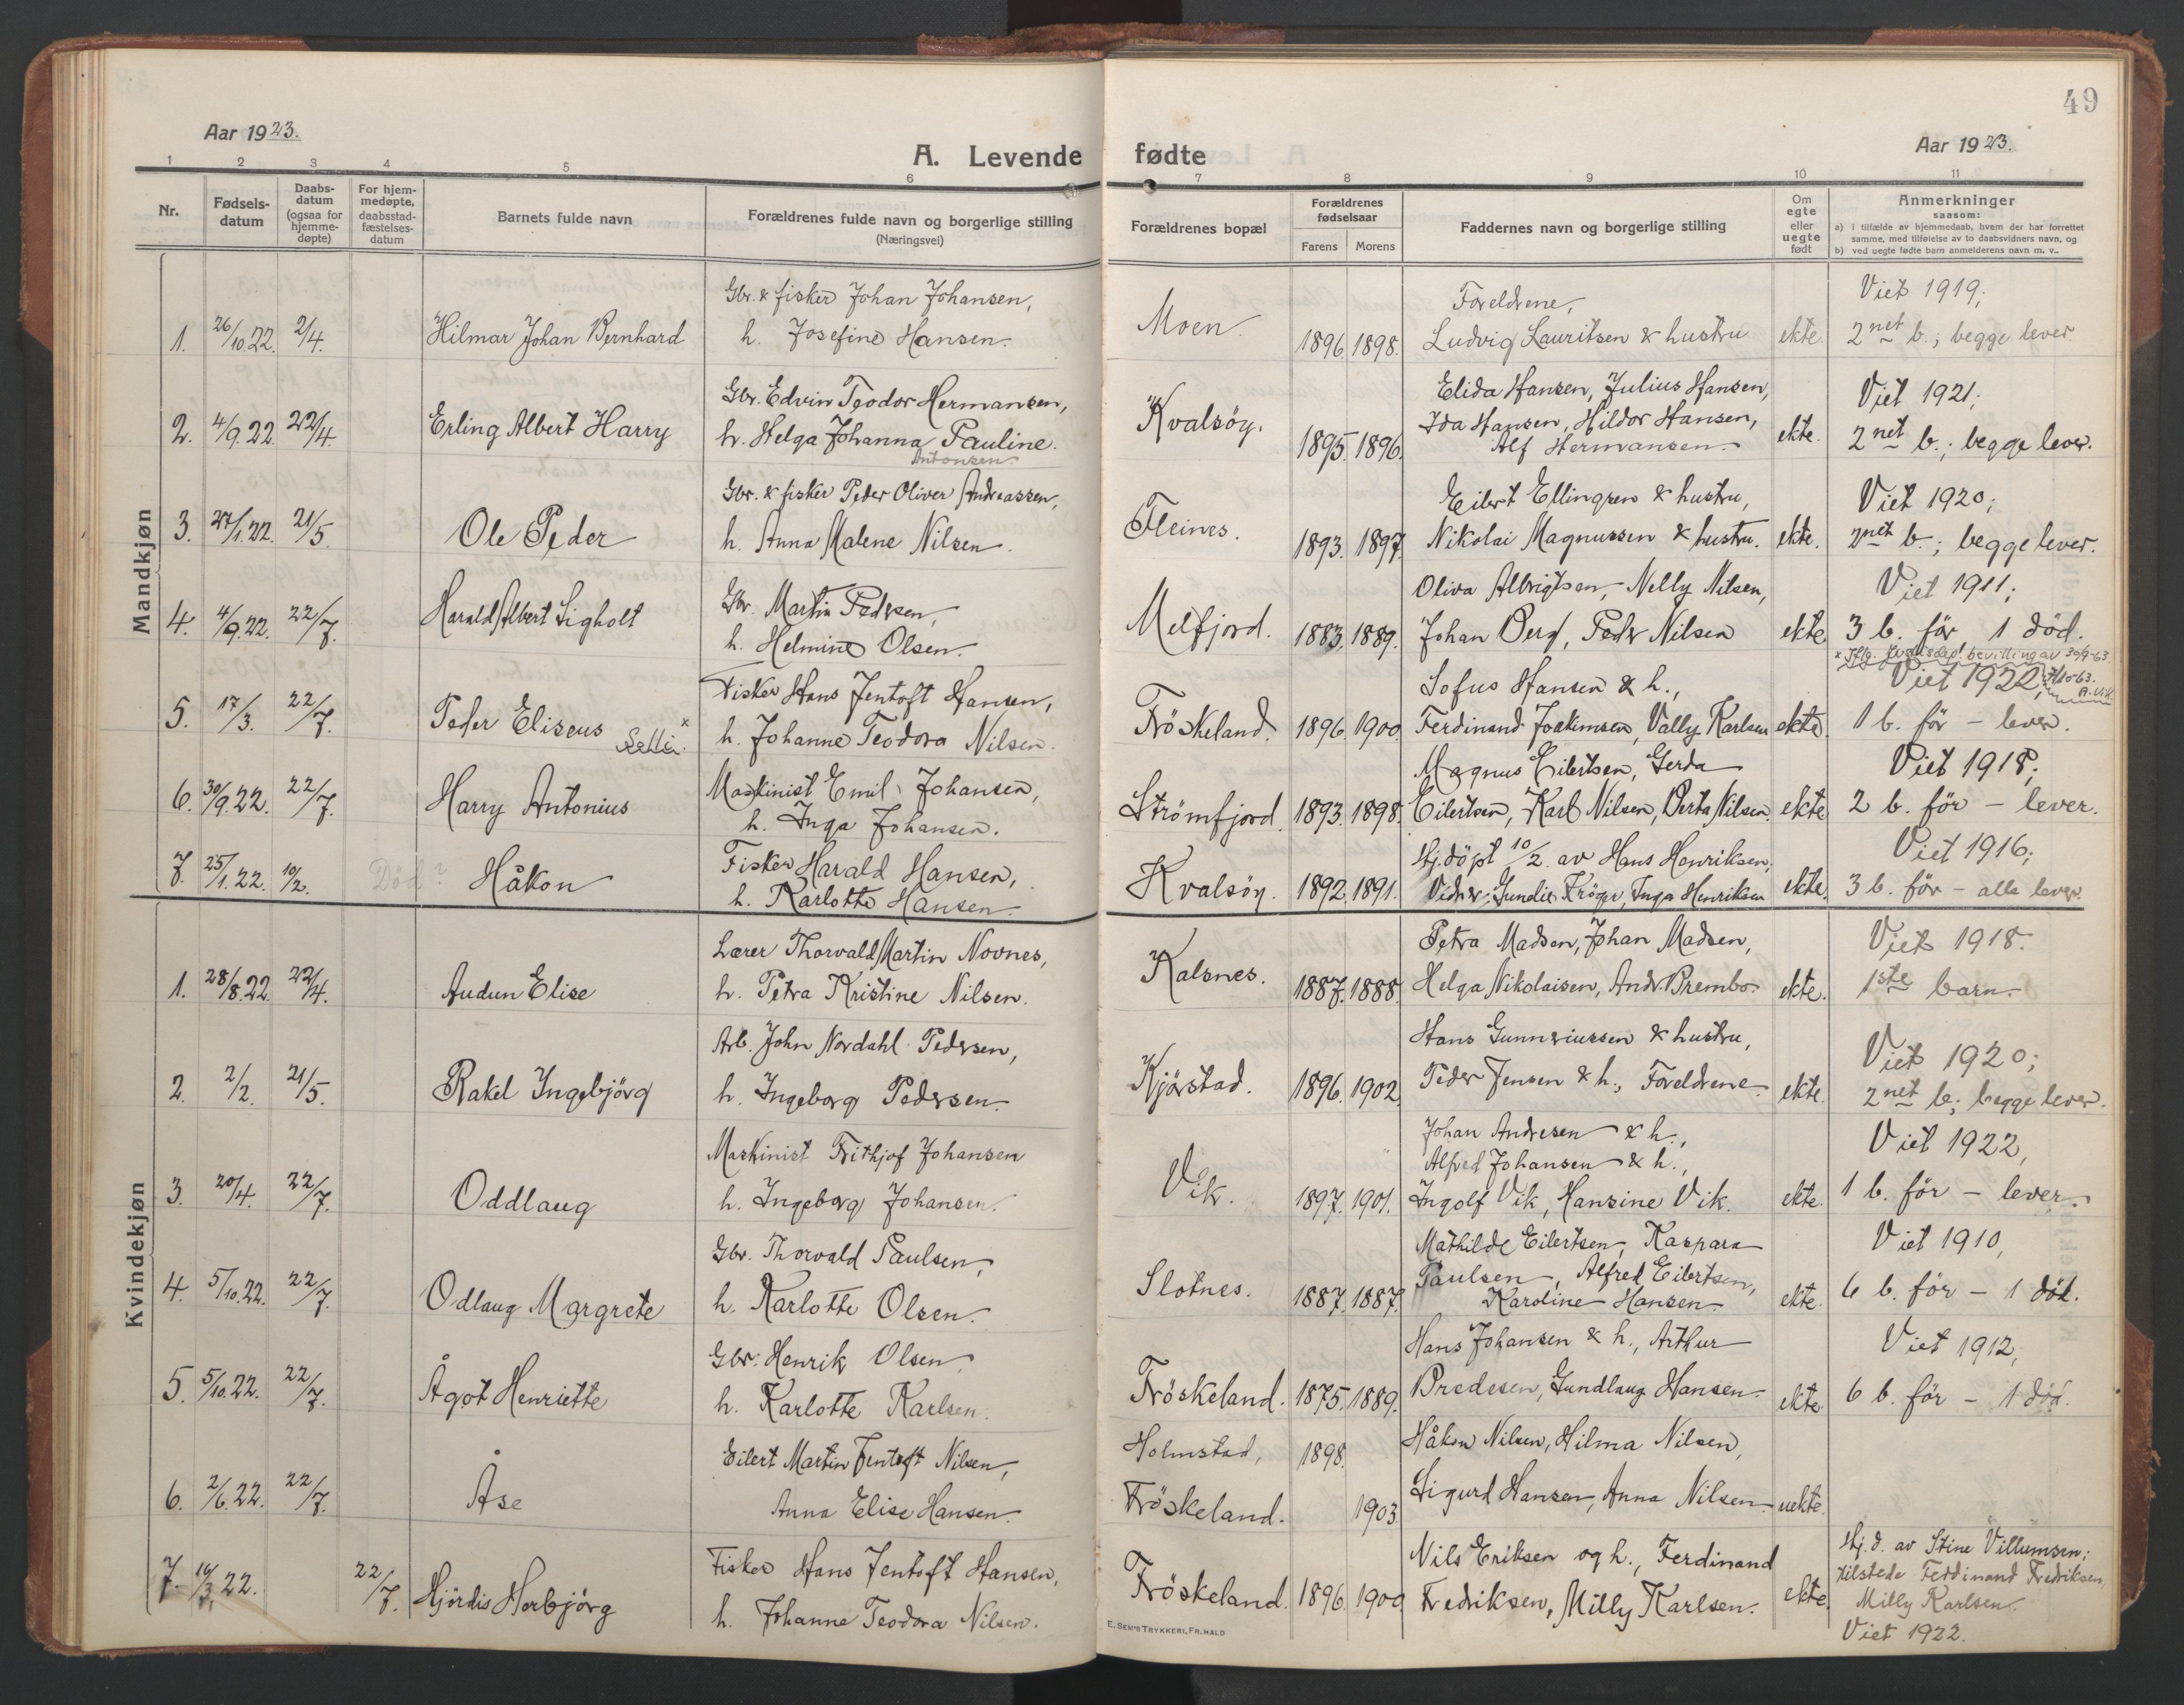 49
Aar 1923.
A. Levende fødte
Aar 1923.
1 2 3 4 5 6 7 8 9 10 11
Nr.
Fødsels-
datum
Daabs-
datum
(ogsaa for
hjemme-
døpte)
For hjem-
medøpte,
daabsstad-
fæstelses-
datum
Barnets fulde navn
Forældrenes fulde navn og borgerlige stilling
(Næringsvei)
Forældrenes bopæl
Forældrenes
fødselsaar
Farens Morens
Faddernes navn og borgerlige stilling
Om
egte
eller
uegte
født
Anmerkninger
saasom:
a) i tilfælde av hjemmedaab, hvem der har forrettet
samme, med tilføielse av to daabsvidners navn, og
b) ved uegte fødte barn anmelderens navn m. v..
Mandkjøn
Gbr. & fisker Johan Johansen,
Foreldrene,
Viet 1919;
1. 26/10 22. 2/4. Hilmar Johan Bernhard h. Josefine Hansen. Moen. 1896. 1898. Ludvig Lauritsen & hustru ekte. 2net b.; begge lever.
Gbr. Edvin Teodor Hermansen,
Elida Hansen, Julius Hansen,
Viet 1921;
2. 4/9 22. 22/4. Erling Albert Harry h. Helga Johanna Pauline Kvalsöy. 1895. 1896. Ida Hansen, Hildor Hansen, ekte. 2net b.; begge lever.
Antonsen
Alf Hermansen
Gbr. & fisker Peder Oliver Andreassen,
Eilert Ellingsen & hustru,
Viet 1920;
3. 27/1. 22. 21/5. Ole Peder h. Anna Malene Nilsen. Fleines. 1893. 1897. Nikolai Magnussen & hustru. ekte. 2net b.; begge lever.
Gbr. Martin Pedersen,
Oliva Albrigtsen, Nelly Nilsen,
Viet 1911;
4. 4/9. 22. 22/7. Harald Albert Sigholt h. Helmine Olsen. Melfjord. 1883. 1889. Johan Berg, Peder Nilsen ekte. 3 b. för, 1 död.
* Iflg. justisdep. bevilling av 30/9-63.
Fisker Hans Jentoft Hansen,
Sofus Hansen & h.,
Viet 1922;
A. Vik
5. 17/3. 22/7. Peder Eliseus * h. Johanne Teodora Nilsen. Fröskeland. 1896. 1900. Ferdinand Joakimsen, Vally Karlsen ekte. 1 b. för - lever.
Maskinist Emil Johansen,
Magnus Eilertsen, Gerda
Viet 1918;
6. 30/9. 22. 22/7. Harry Antonius h. Inga Johansen. Strömfjord 1893. 1898. Eilertsen, Karl Nilsen, Berta Nilsen. ekte. 2 b. för - lever.
Fisker Harald Hansen,
Hj. döpt 10/2. av Hans Henriksen,
Viet 1916;
7. 25/1. 22. 10/2. Död? Håkon h. Karlotte Hansen Kvalsöy. 1892. 1891. Vidner: Gundie Kröger, Inga Henriksen ekte. 3 b. för - alle lever.
Kvindekjøn
Lærer Thorvald Martin Novnes,
Petra Madsen, Johan Madsen,
Viet 1918.
1. 28/8. 22. 22/4. Audun Elise h. Petra Kristine Nilsen. Kalsnes. 1887. 1888. Helga Nikolaisen, Andr. Brembo. ekte. 1ste barn.
Arb. John Nordahl Pedersen,
Hans Gunneriussen & hustru,
Viet 1920;
2. 2/2. 21/5. Rakel Ingebjörg h. Ingeborg Pedersen. Kjörstad. 1896. 1902. Peder Jensen & h., Foreldrene ekte. 2net b.; begge lever.
Maskinist Frithjof Johansen
Johan Andresen & h.,
Viet 1922,
Alfred Johansen & h.,
3. 20/4. 22/7. Oddlaug h. Ingeborg Johansen. Vik. 1897. 1901. Ingolf Vik, Hansine Vik. ekte. 1 b. för - lever.
Gbr. Thorvald Paulsen,
Mathilde Eilertsen, Kaspara
Viet 1910,
4. 5/10. 22. 22/7. Odlaug Margrete h. Karlotte Olsen. Slotnes. 1887. 1887. Paulsen, Alfred Eilertsen, ekte. 6 b. för - 1 död.
Karoline Hansen
Gbr. Henrik Olsen,
Hans Johansen & h., Arthur
Viet 1912,
5. 5/10. 22. 22/7. Ågot Henriette h. Karlotte Karlsen. Fröskeland. 1875. 1889. Bredesen, Gundlaug Hansen ekte. 6 b. för - 1 död.
Eilert Martin Jentoft Nilsen, Holmstad, 1898. Håkon Nilsen, Hilma Nilsen,
6. 2/6. 22. 22/7. Åse Anna Elise Hansen. Fröskeland. 1903. Sigurd Hansen, Anna Nilsen uekte.
Fisker Hans Jentoft Hansen,
Nils Eriksen og h., Ferdinand
Hj. d. av Stine Villumsen;
tilstede Ferdinand Fredriksen,
7. 16/3. 22. 22/7. Hjördis Herbjörg h. Johanne Teodora Nilsen. Fröskeland. 1896. 1900. Fredriksen, Milly Karlsen. ekte. Milly Karlsen.
Viet 1922.
E. SEM'S TRYKKERI, FR.HALD